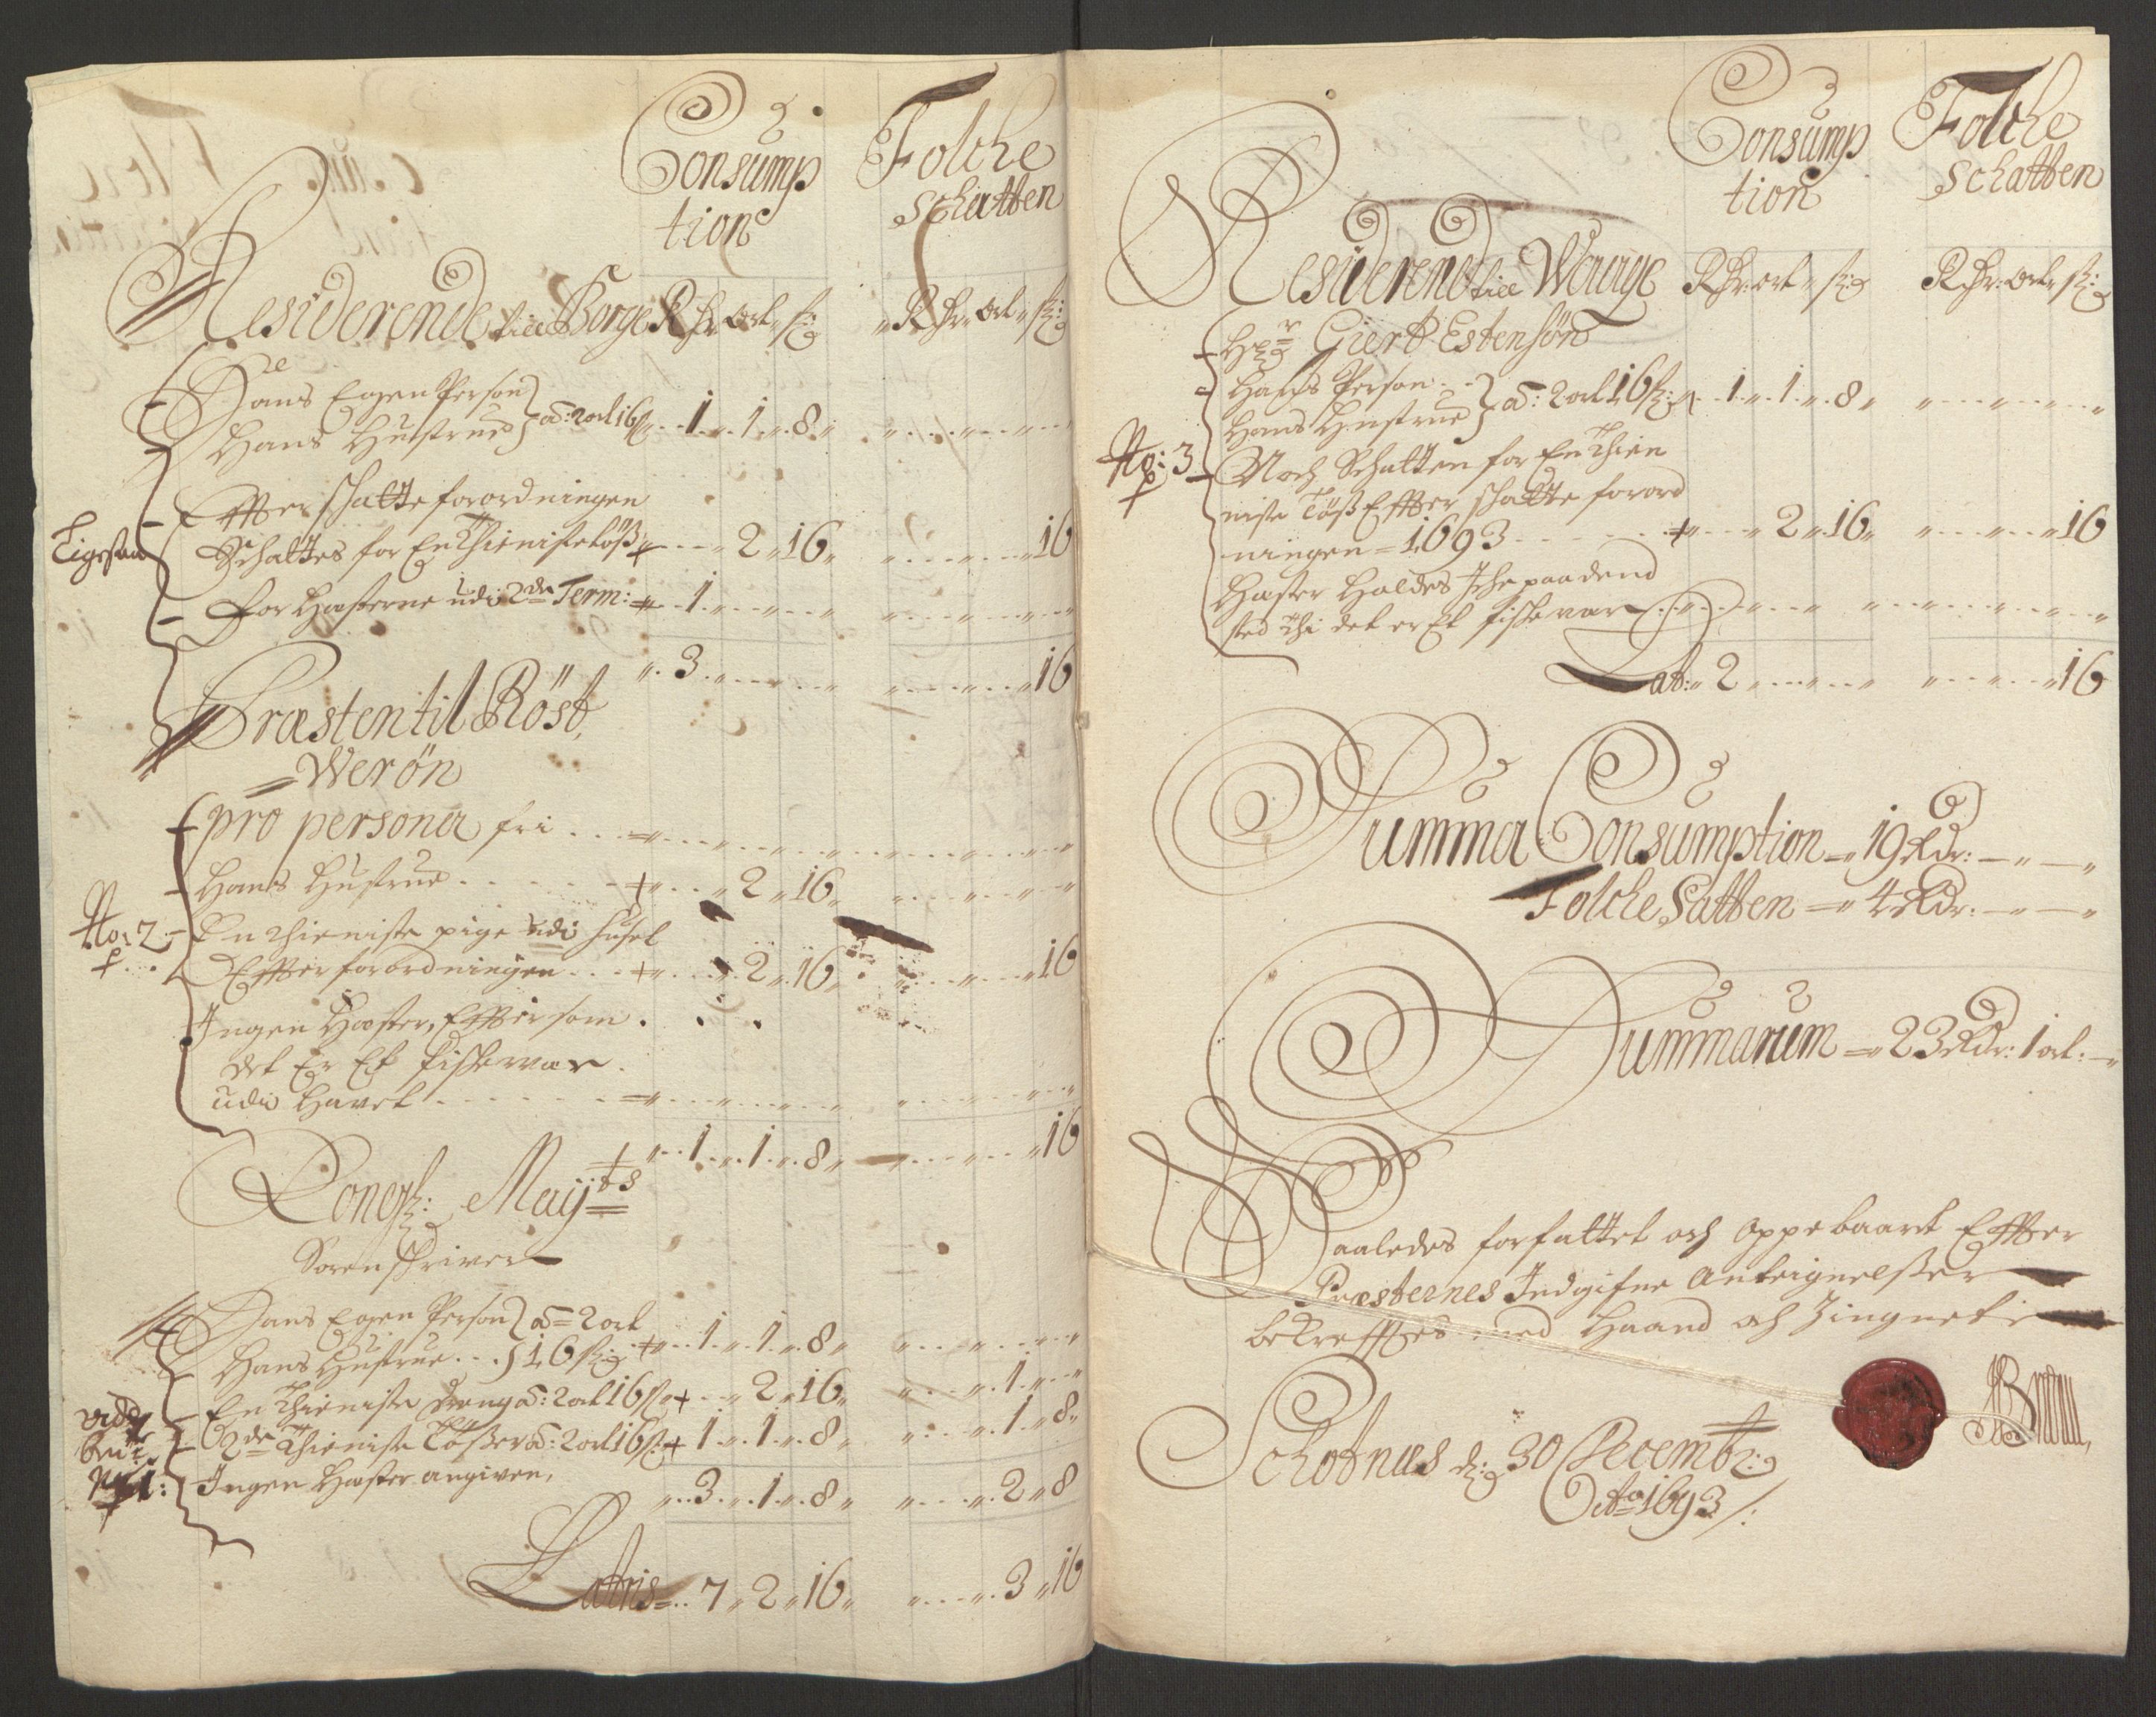 Consump
tion
Folche
Schatten
Residerende till Borge Rdr: ort sk:
Rdr: ort sk:
Hans Egen Person
Hans Hustrue } a: 2 ort 16 sk: 1 1 8
Effter schatte forordningen
Ligesaa
Schattes for En Thieniste töß + 2 16 16
For Hæsterne udi 2de Term: 1
3 16
Præsten til Röst,
Werön
pro persona fri
Hans Hustrue + 2 16
No: 2
En thieniste pige udi huset
Effter forordningen + 2 16 16
Ingen Hæster, Effter som
det Er Et fischewær
udi Havet
1 1 8 16
Kongl: Mayts
Sorenschriver
Hans Egen Person } a 2 ort
Hans Hustrue } 16 sk: + 1 1 8
En Thieniste dreng a: 2 ort 16 sk + 2 16 1
2de Thieniste Tößer a: 2 ort 16 sk + 1 1 8 1 8
No 1:
Ingen Hæster angiven,
3 1 8 2 8
Lateris 7 2 16 3 16
Consump
tion
Folche
Schatten
Residerende till Waage Rdr: ort sk:
Rdr: ort sk:
Hr: Giert Estensön
Hans Person
Hans Hustrue } a: 2 ort 16 sk: 1 1 8
No: 3
Noch Schatten for En Thien
niste Töß Effter schatte forord
ningen 1693 + 2 16 16
Hæster Holdes Iche paa dend
sted thi det er Et fischewær
Lat: 2 16
Summa Consumption 19 Rdr:
Folche Satten 4 Rdr:
Summarum 23 Rdr: 1 ort:
Saaledes forfattet och Oppebaaret Effter
Præsternes Indgifne Anteignelßer
bekrefftes med Haand och Zingnete
Schotnæs d: 30 Decembr:
Ao 1693 /: